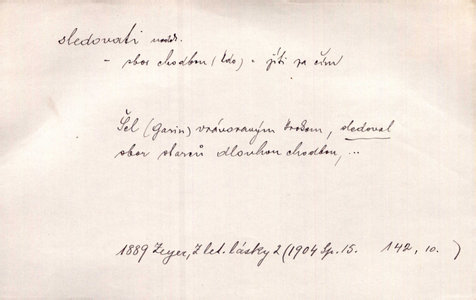 sledovati nedok.
– sbor chodbou (kdo) – jíti za čím
Šel (Garin) vrávoravým krokem, sledoval
sbor starců dlouhou chodbou, ...
1889 Zeyer, Z let. lásky 2 (1904 Sp. 15. 142, 10. )